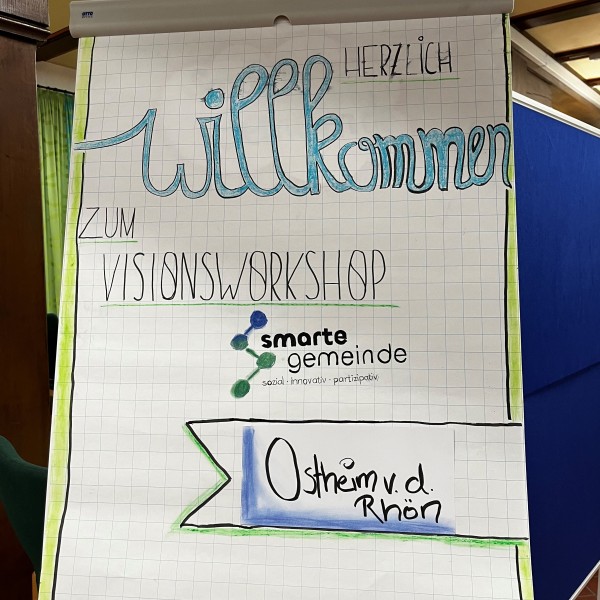 HERZLICH
Willkommen
ZUM
VISIONSWORKSHOP
smarte
gemeinde
sozial · innovativ · partizipativ
Ostheim v. d.
Rhön